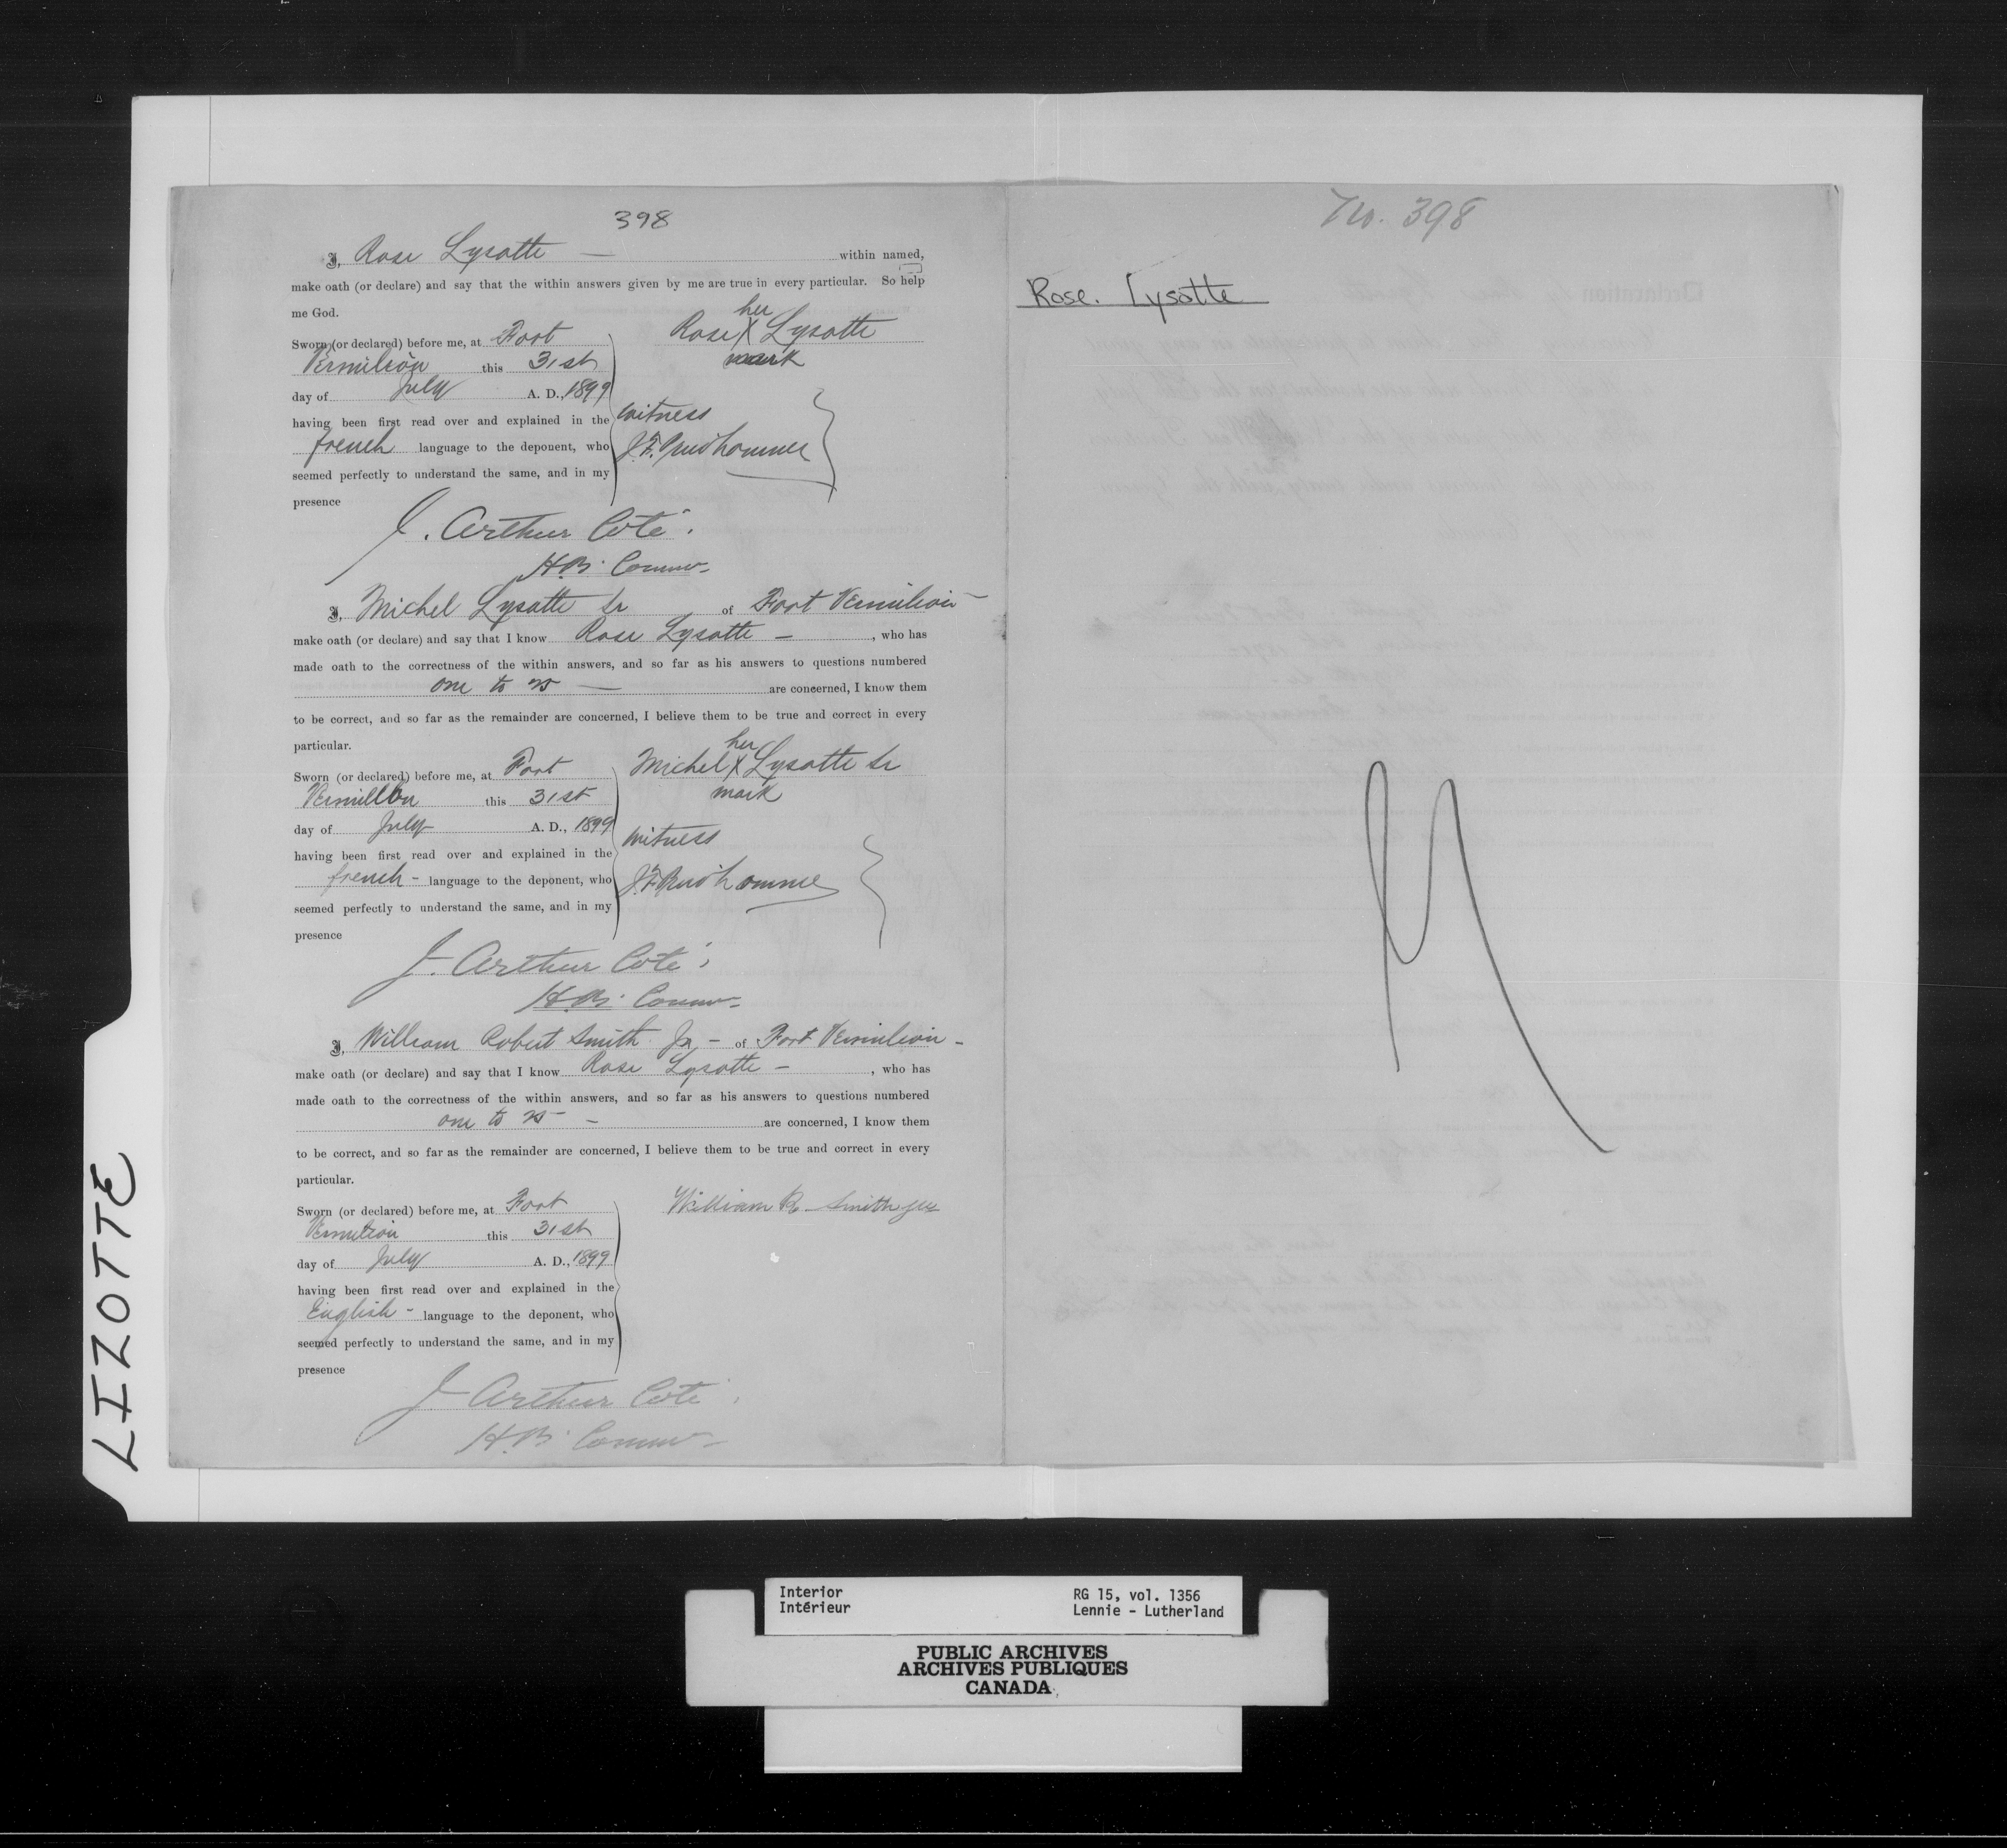 398
I, Rose Lysotte — within named,
make oath (or declare) and say that the within answers given by me are true in every particular. So help
me God.
Sworn (or declared) before me, at Fort
Vermilion this 31st
day of July A. D., 1899
having been first read over and explained in the
french language to the deponent, who
seemed perfectly to understand the same, and in my
presence
her
Rose X Lysotte
mark
witness
J. F. Prudhomme
J. Arthur Coté.
H.B. Comm-
I, Michel Lysotte Sr of Fort Vermilion -
make oath (or declare) and say that I know Rose Lysotte - , who has
made oath to the correctness of the within answers, and so far as his answers to questions numbered
one to — are concerned, I know them
to be correct, and so far as the remainder are concerned, I believe them to be true and correct in every
particular.
Sworn (or declared) before me, at Fort
Vermillon this 31st
day of July A. D., 1899
having been first read over and explained in the
french - language to the deponent, who
seemed perfectly to understand the same, and in my
presence
her
Michel X Lysotte Sr
mark
witness
J. F. Prudhomme
J. Arthur Coté
H.B. Comm-
I, William Robert Smith Jr - of Fort Vermilion -
make oath (or declare) and say that I know Rose Lysotte - , who has
made oath to the correctness of the within answers, and so far as his answers to questions numbered
one to - are concerned, I know them
to be correct, and so far as the remainder are concerned, I believe them to be true and correct in every
particular.
Sworn (or declared) before me, at Fort
Vermilion this 31st
day of July A. D., 1899
having been first read over and explained in the
English - language to the deponent, who
seemed perfectly to understand the same, and in my
presence
William R Smith
J. Arthur Coté
H.B. Comm-
No. 398
Rose. Lysotte
LIZOTTE
Interior
Intérieur
RG 15, vol. 1356
Lennie - Lutherland
PUBLIC ARCHIVES
ARCHIVES PUBLIQUES
CANADA